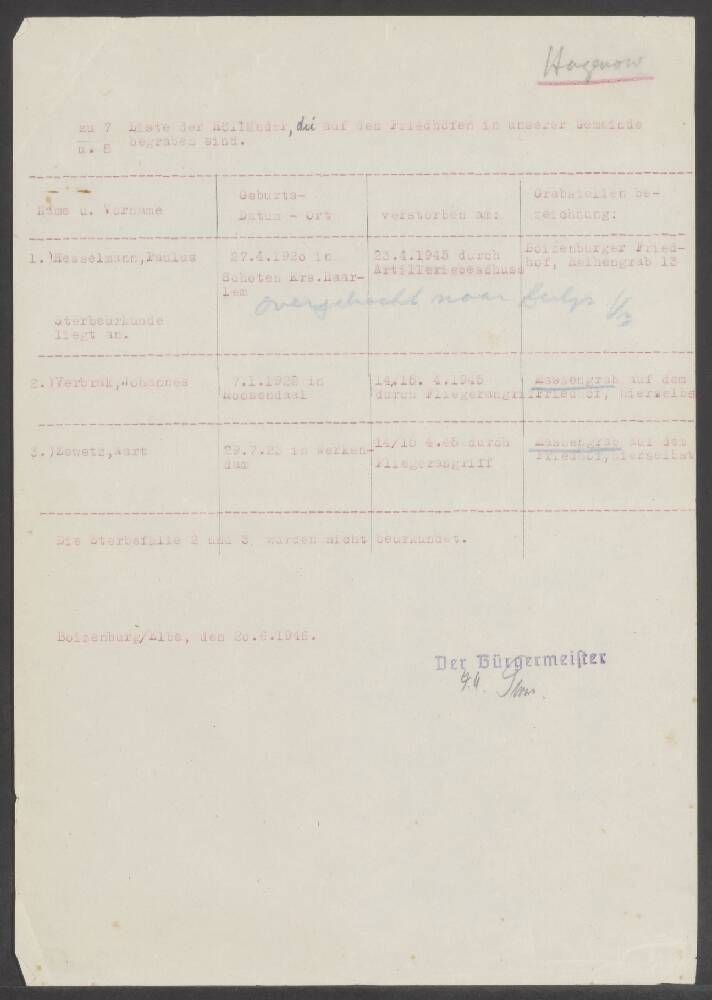 Hagenow
zu 7 Liste der Holländer, die auf den Friedhöfen in unserer Gemeinde
u. 8 begraben sind.
Name u. Vorname
Geburts-
Datum - Ort
verstorben am:
Grabstellen be-
zeichnung:
1.)Hesselmann,Paulus
27.4.1920 in
Schoten Krs.Haar-
lem
23.4.1945 durch
Artilleriebeschuss
Boizenburger Fried-
hof, Reihengrab 13
overgebracht naar
Sterbeurkunde
liegt an.
2.)Verbrak,Johannes
7.1.1928 in
Roosendaal
14/15. 4.1945
durch Fliegerangriff
Massengrab auf dem
Friedhof, hierselbst
3.)Zewetz,Kurt
29.7.23 in Werken-
dam
14/15 4.45 durch
Fliegerangriff
Massengrab auf dem
Friedhof,hierselbst
Die Sterbefälle 2 und 3 wurden nicht beurkundet.
Boizenburg/Elbe, den 20.6.1946.
Der Bürgermeister